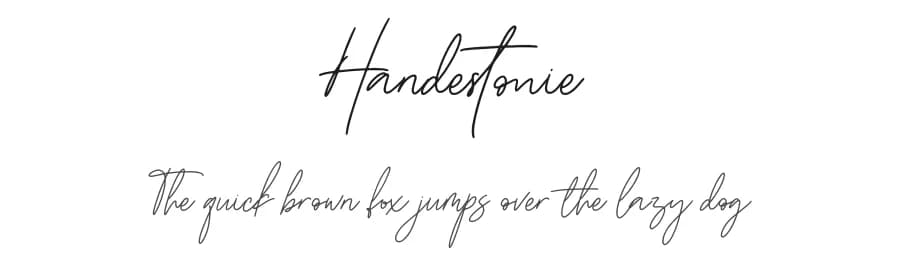 Handestonie
The quick brown fox jumps over the lazy dog